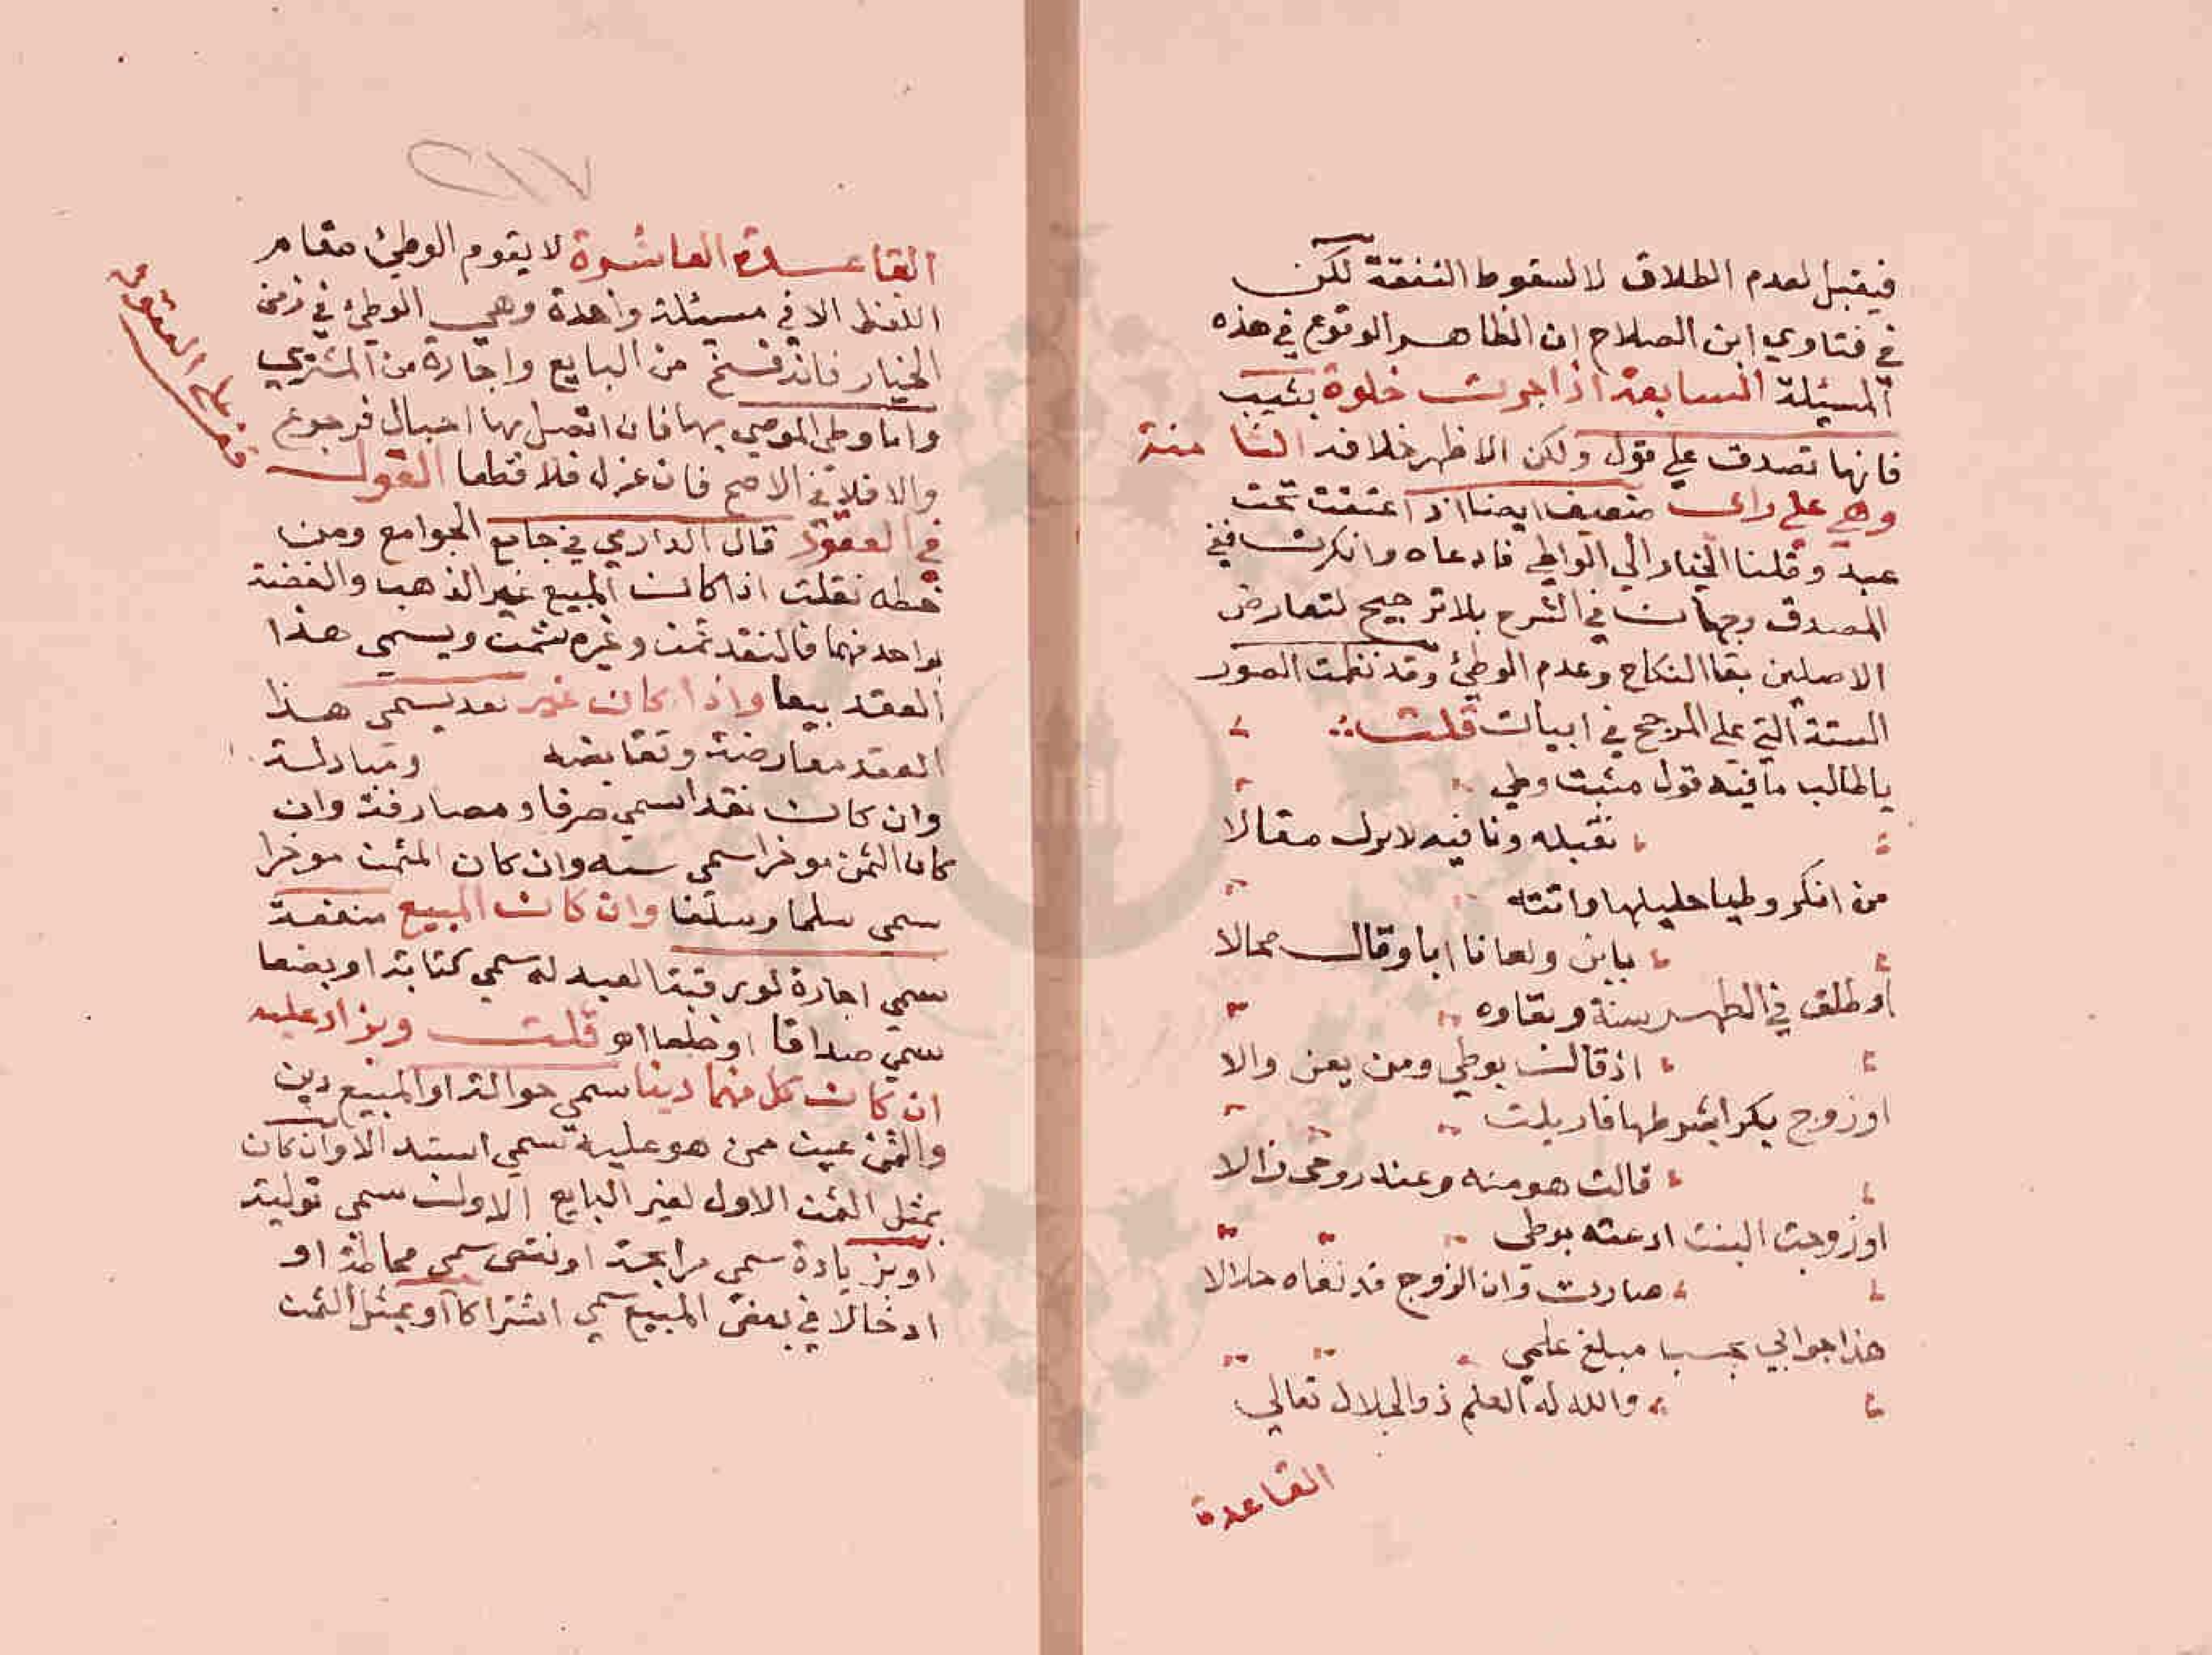 فيقبل لعدم الطلاق لا لسقوط النفقة لكن
في فتاوي ابن الصلاح ان الظاهر الوقوع في هذه
المسئلة السابعة اذا جرت خلوة بثيب
فانها تصدق علي قول ولكن الاظهر خلافه الثامنة
وهي علي راي ضعيف ايضا اذا عتقت تحت
عبد وقلنا الخيار الي الواطي فادعاه وانكرت ففي
المصدق وجهان في الشرح بلا ترجيح لتعارض
الاصلين بقا النكاح وعدم الوطئ وقد نظمت الصور
الستة التي علي المرجح في ابيات قلت
ياطالب ما فيه قول مثبت وطي
نقبله ونافيه لا مقالا
من انكر وطيا حليلها واتته
بابن ولعانا ابا وقال محالا
او طلق في الطهر سنة ونفاه
اذ قالت بوطي ومن يعن والا
او زوج بكرا بشرطها فازيلت
قالت هو منه وعنه زالا
او زوجت البنت ادعته بوطي
صارت وان الزوج قد نفاه حلالا
هذا جوابي بحسب مبلغ علمي
والله له العلم ذو الجلال تعالي
القاعدة
٢١٧
القاعدة العاشرة لا يقوم الوطئ مقام
اللفظ الا في مسئلة واحدة وهي الوطئ في زمن
الخيار فانه فسخ من البايع واجازة من المشتري
واما وطي الموصي بها فان اتصل بها احبال فرجوع
والا فلا في الاصح فان عزل فلا قطعا القول
في العقود قال الدارمي في جامع الجوامع ومن
خطه نقلت اذا كان المبيع غير الذهب والفضة
بواحد منهما فالنقد ثمن وغيره مثمن ويسمي هذا
العقد بيعا واذا كان غير نقد يسمي هذا
العقد معارضة وتقايضه ومبادلة
وان كان نقدا سمي صرفا ومصارفة وان
كان الثمن موخرا سمي وان كان المثمن موخرا
سمي سلما وسلفا وان كان المبيع منفعة
سمي اجارة او رقبة العبد له سمي كتابة او بضعا
سمي صداقا او خلعا اهو قلت ويزاد عليه
ان كان كل منهما دينا سمي حوالة او المبيع دين
والثمن عين ممن هو عليه تسمي استبدالا وان كان
بمثل الثمن الاول لغير البايع الاول سمي تولية
او بزيادة سمي مرابحة او نقص سمي محاطة او
ادخالا في بعض المبيع سمي اشتراكا او بمثل الثمن